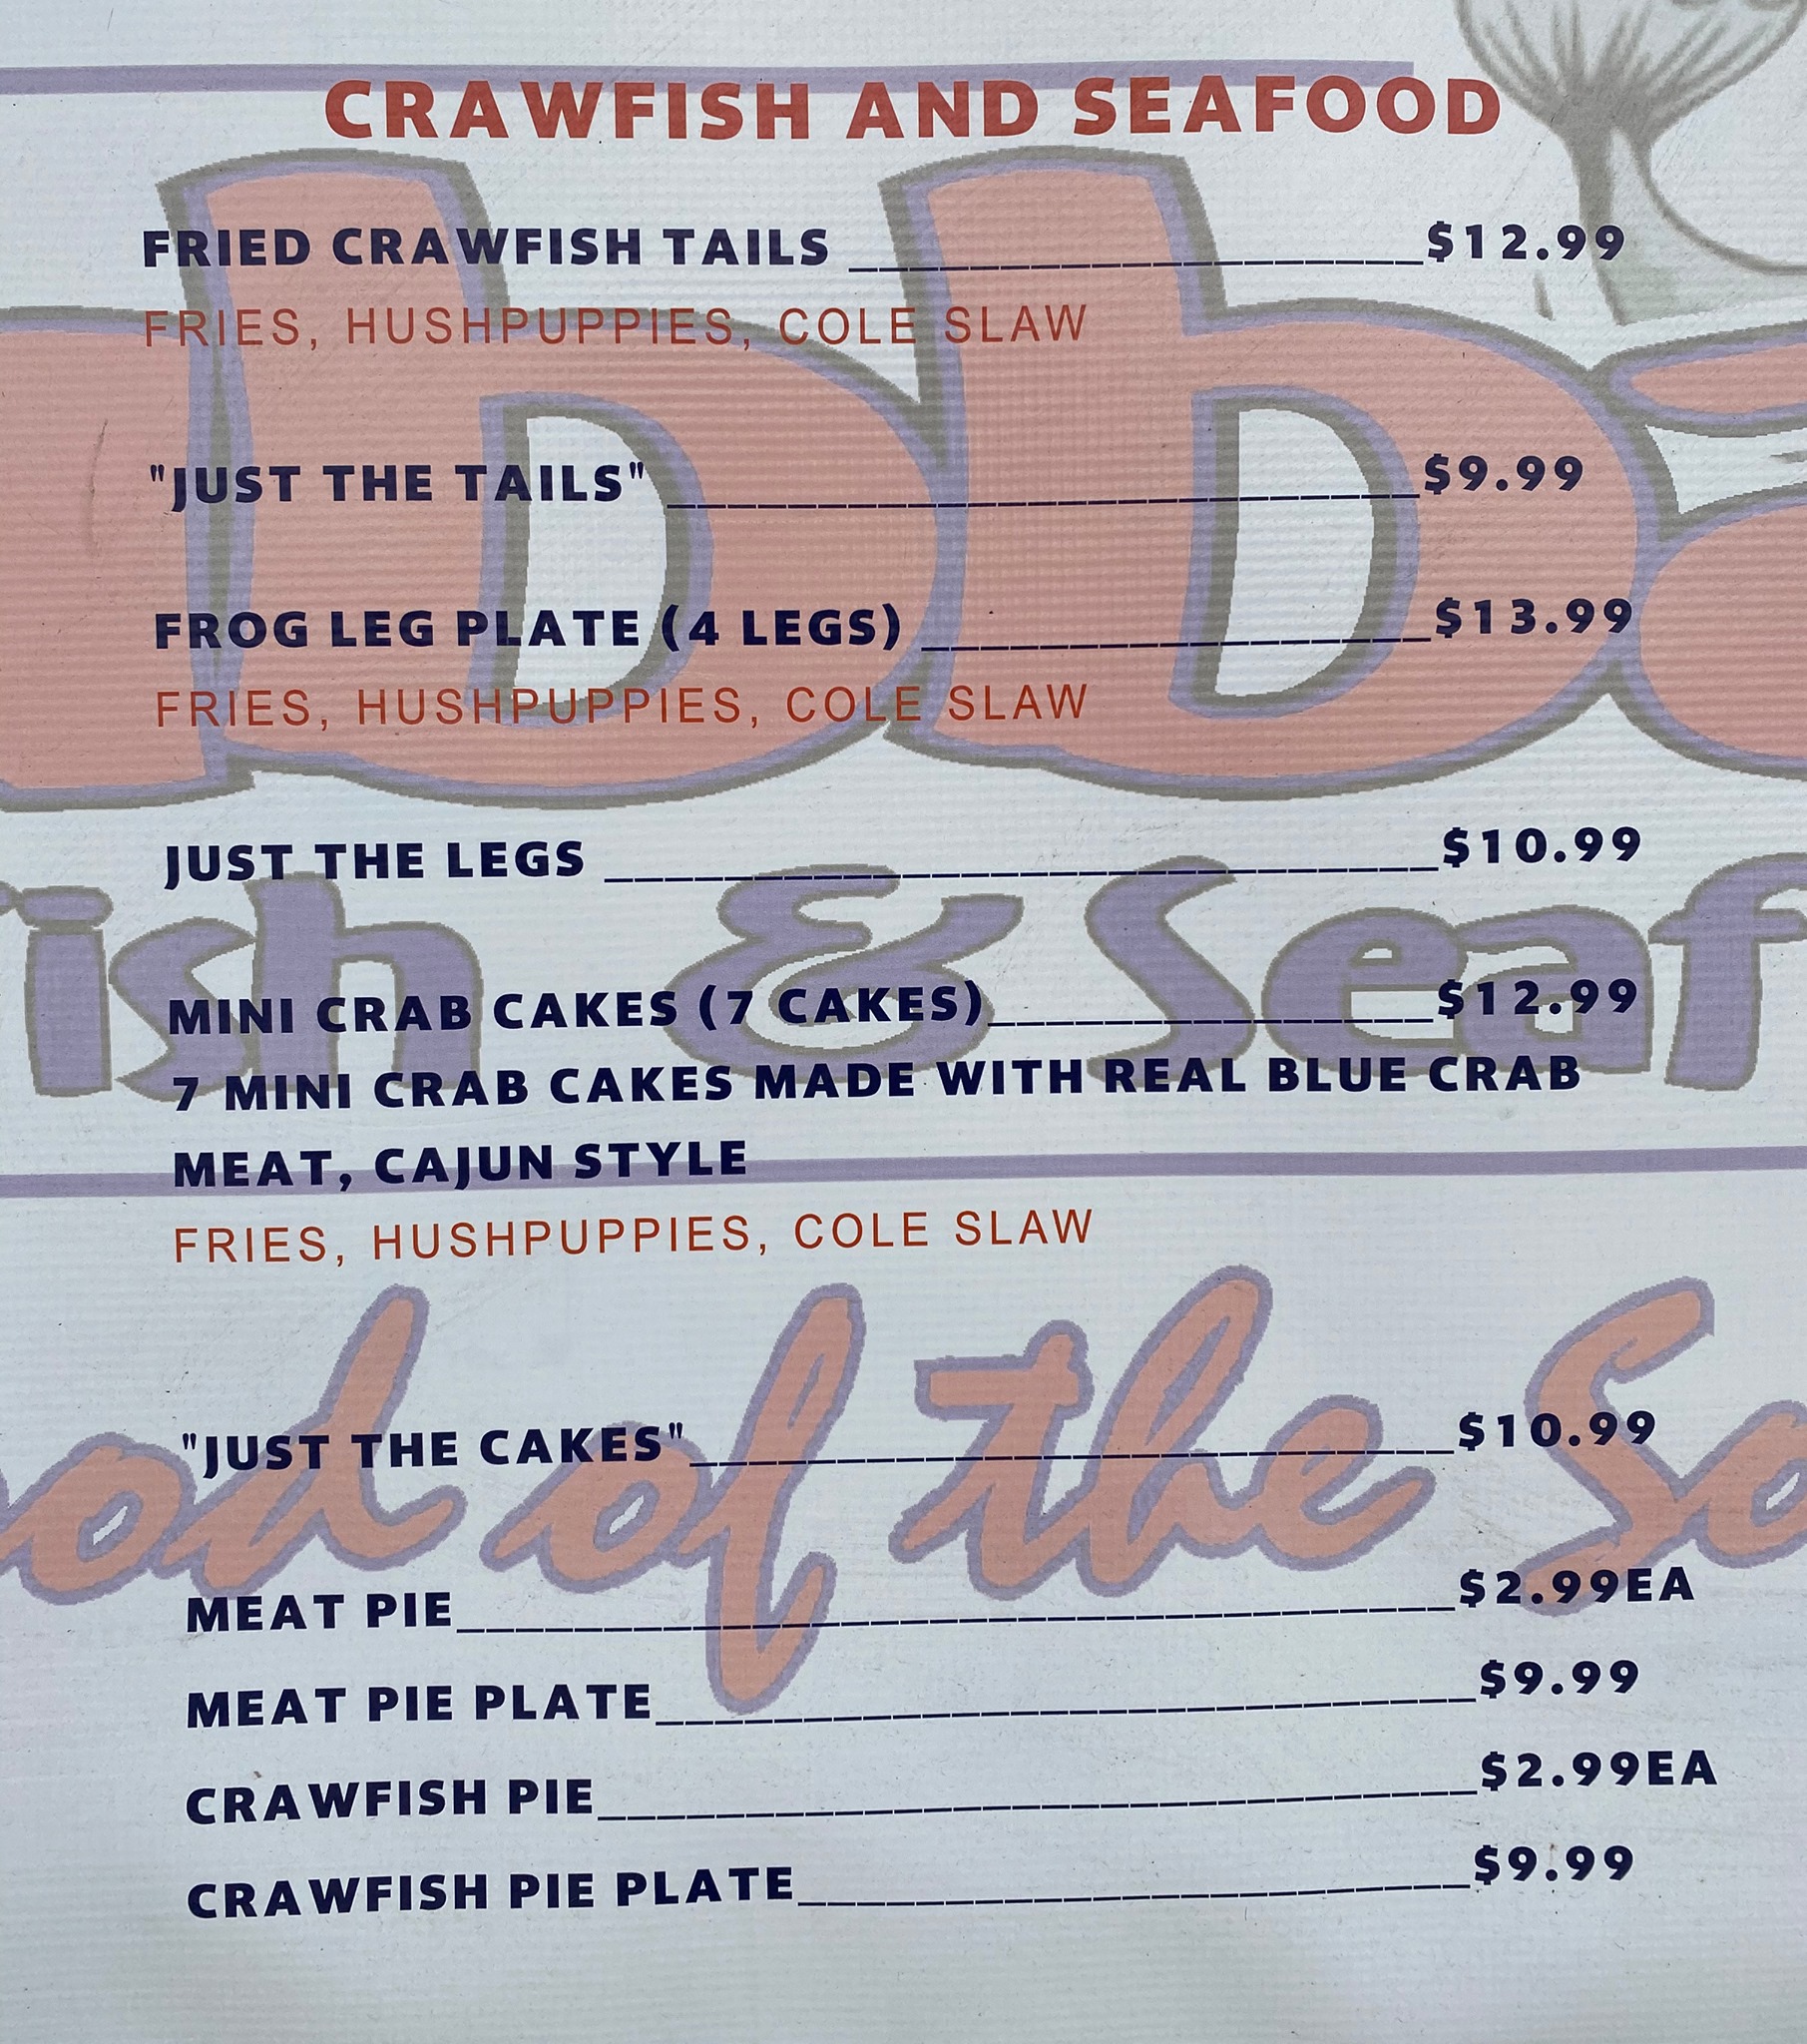 CRAWFISH AND SEAFOOD
FRIED CRAWFISH TAILS $12.99
FRIES, HUSHPUPPIES, COLE SLAW
"JUST THE TAILS" $9.99
FROG LEG PLATE (4 LEGS) $13.99
FRIES, HUSHPUPPIES, COLE SLAW
JUST THE LEGS $10.99
ish & Seaf
MINI CRAB CAKES (7 CAKES) $12.99
7 MINI CRAB CAKES MADE WITH REAL BLUE CRAB
MEAT, CAJUN STYLE
FRIES, HUSHPUPPIES, COLE SLAW
"JUST THE CAKES" $10.99
ood of the So
MEAT PIE $2.99EA
MEAT PIE PLATE $9.99
CRAWFISH PIE $2.99EA
CRAWFISH PIE PLATE $9.99